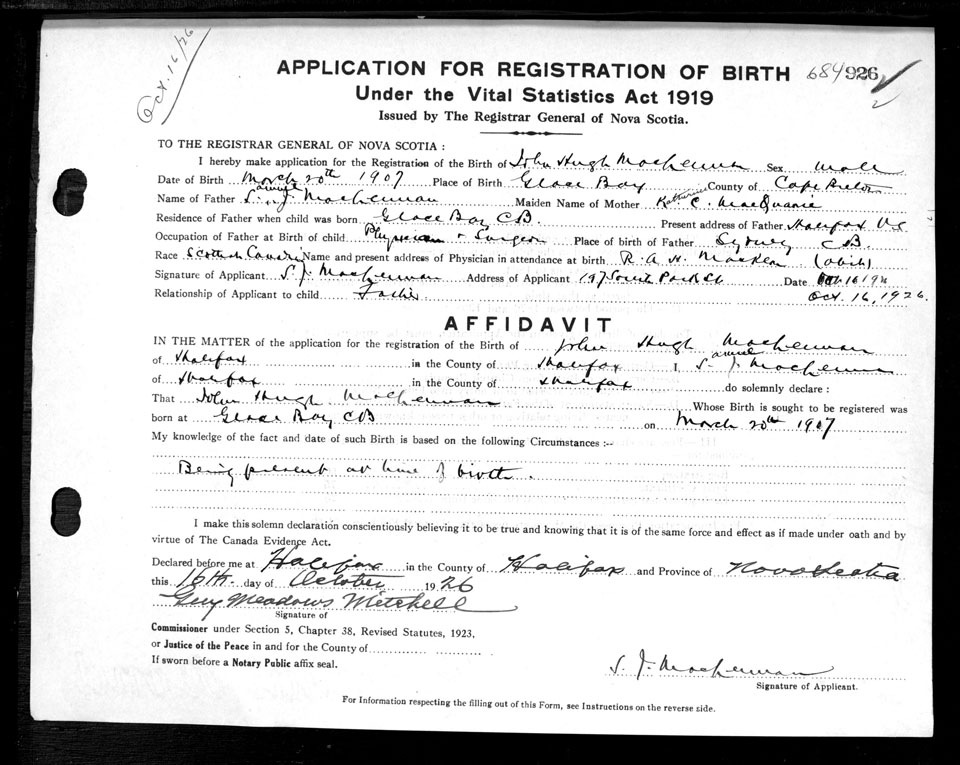 Oct. 16/26
APPLICATION FOR REGISTRATION OF BIRTH 684926
2
Under the Vital Statistics Act 1919
Issued by The Registrar General of Nova Scotia.
TO THE REGISTRAR GENERAL OF NOVA SCOTIA :
I hereby make application for the Registration of the Birth of John Hugh MacLennan Sex male
Date of Birth March 20th 1907 Place of Birth Glace Bay County of Cape Breton
Name of Father Samuel J MacLennan Maiden Name of Mother Katherine C. MacQuarrie
Residence of Father when child was born Glace Bay CB. Present address of Father Halifax N.S.
Occupation of Father at Birth of child Physician + Surgeon Place of birth of Father Sydney CB.
Race Scottish Name and present address of Physician in attendance at birth R. A. H. MacKeen
Signature of Applicant S. J. MacLennan Address of Applicant 197 South Park St Date
Oct. 16, 1926.
Relationship of Applicant to child Father.
AFFIDAVIT
IN THE MATTER of the application for the registration of the Birth of John Hugh MacLennan
of Halifax in the County of Halifax I, Samuel J. MacLennan
of Halifax in the County of Halifax do solemnly declare :
That John Hugh MacLennan Whose Birth is sought to be registered was
born at Glace Bay CB on March 20th 1907
My knowledge of the fact and date of such Birth is based on the following Circumstances :—
Being present at time of birth.
I make this solemn declaration conscientiously believing it to be true and knowing that it is of the same force and effect as if made under oath and by
virtue of The Canada Evidence Act.
Declared before me at Halifax in the County of Halifax and Province of Nova Scotia
this 16th. day of October 1926
Guy Meadows Mitchell
Signature of
Commissioner under Section 5, Chapter 38, Revised Statutes, 1923,
or Justice of the Peace in and for the County of
If sworn before a Notary Public affix seal.
S. J. MacLennan
Signature of Applicant.
For Information respecting the filling out of this Form, see Instructions on the reverse side.